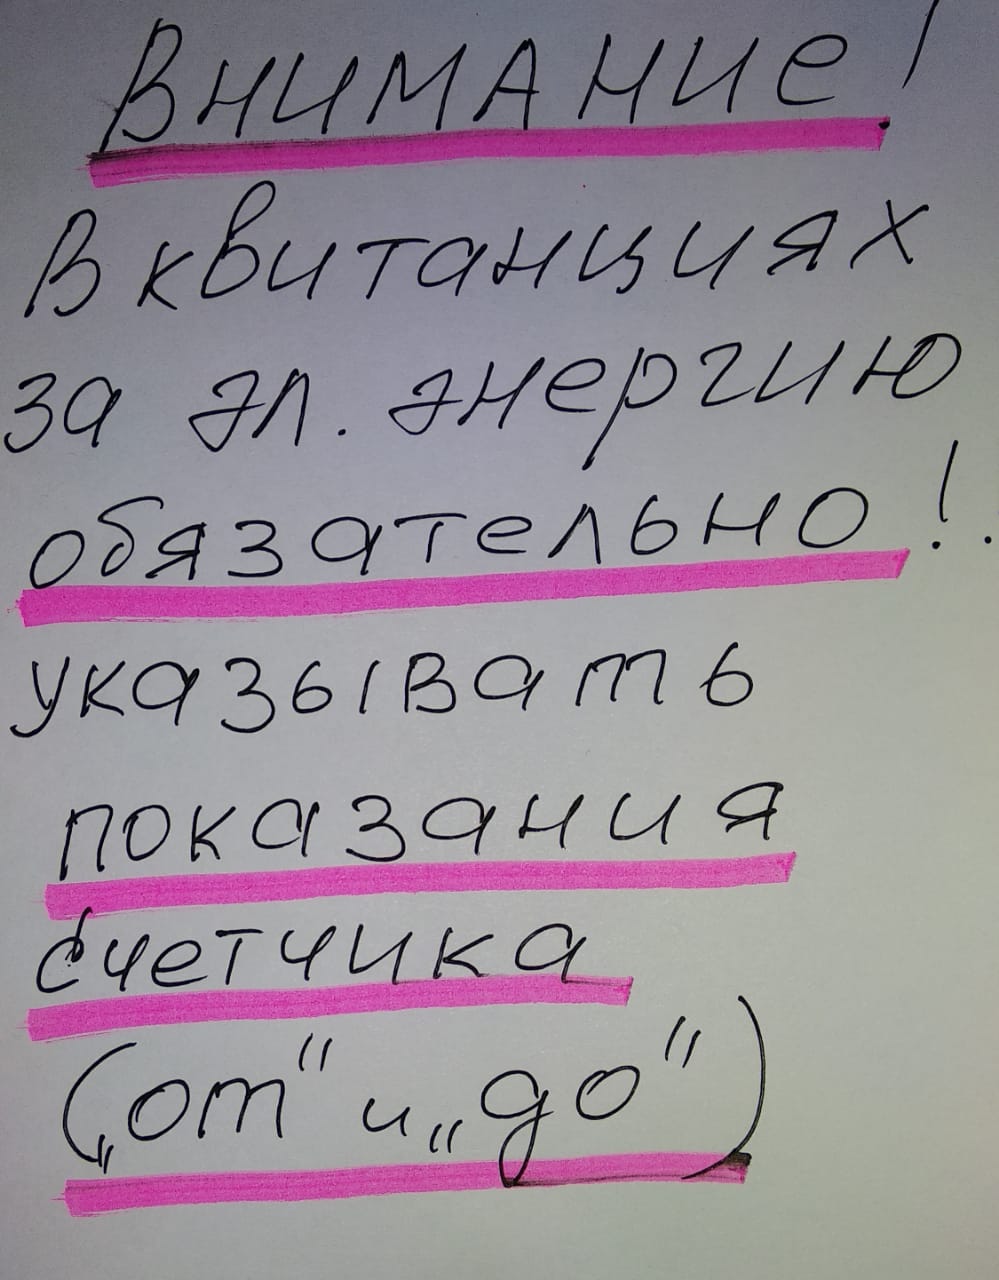 Внимание!
В квитанциях
за эл. энергию
обязательно!
указывать
показания
счетчика
(„от" и „до")